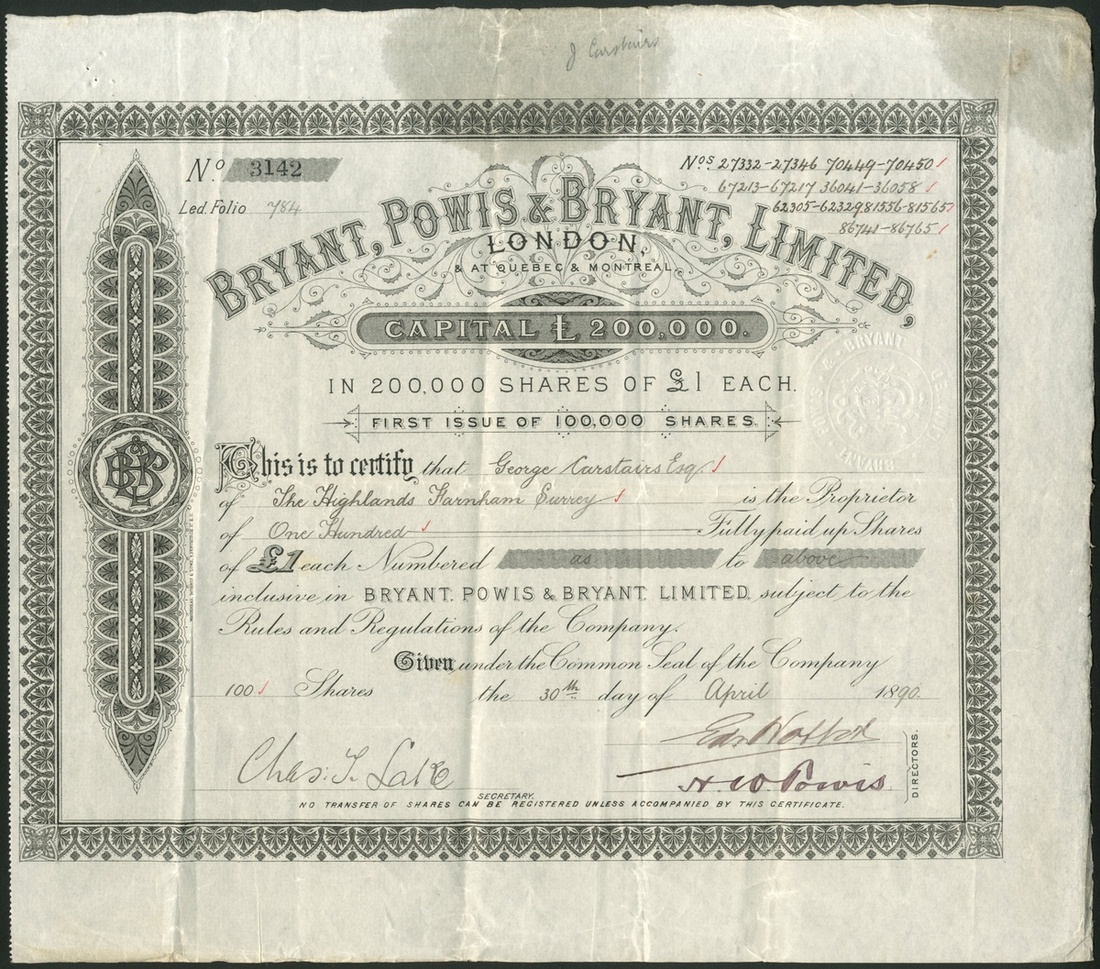 J Carstairs
No. 3142
Nos. 27332-27346 70449-70450
Led. Folio 784
67213-67217 36041-36058
62305-62329 81556-81565
86741-86765
BRYANT, POWIS & BRYANT, LIMITED,
LONDON,
& AT QUEBEC & MONTREAL.
CAPITAL £ 200,000.
IN 200,000 SHARES OF £1 EACH.
FIRST ISSUE OF 100,000 SHARES.
This is to certify that George Carstairs Esq.
of The Highlands Farnham Surrey is the Proprietor
of One Hundred Fully paid up Shares
of £1 each Numbered as to above
inclusive in BRYANT. POWIS & BRYANT. LIMITED. subject to the
Rules and Regulations of the Company.
Given under the Common Seal of the Company
100 Shares the 30th day of April 1890.
Chas: T. Lake
H. W. Powis
DIRECTORS.
SECRETARY.
NO TRANSFER OF SHARES CAN BE REGISTERED UNLESS ACCOMPANIED BY THIS CERTIFICATE.